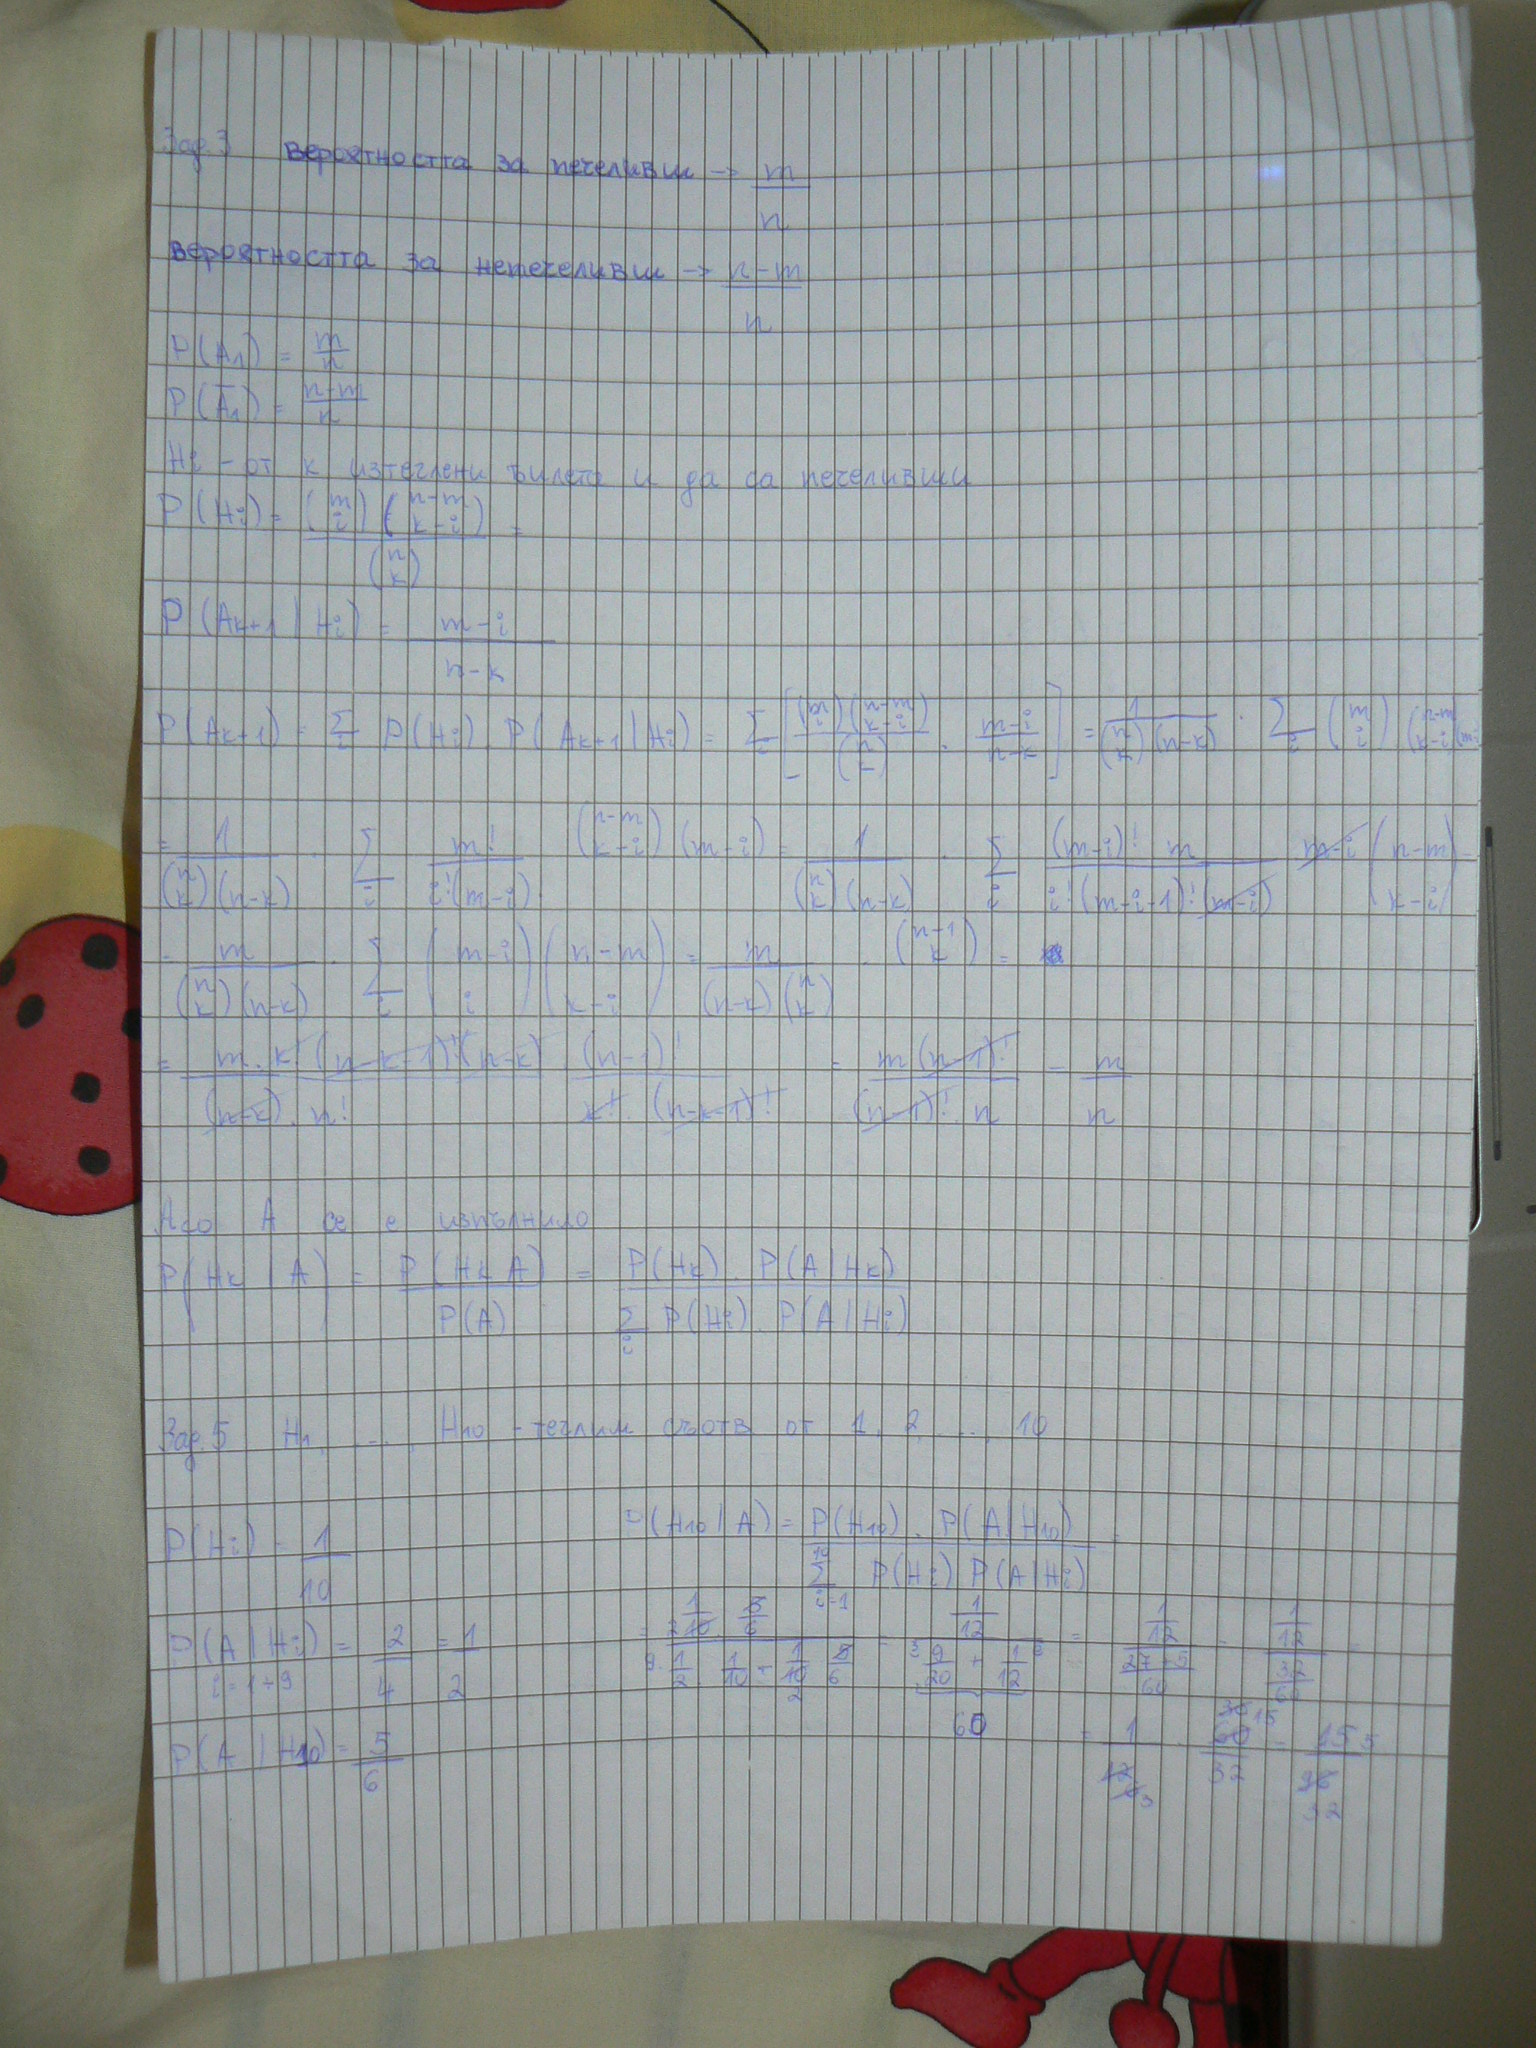 Зад.3 вероятността за печеливш → m/n
вероятността за непечеливш → n-m/n
P(A1) = m/n
P(A̅1) = n-m/n
Hi - от k изтеглени билета i да са печеливши
P(Hi) = (m i)(n-m k-i)/(n k) =
P(Ak+1 | Hi) = m-i/n-k
P(Ak+1) = Σi P(Hi). P(Ak+1 | Hi) = Σi [(m i)(n-m k-i)/(n k) . m-i/n-k] = 1/(n k)(n-k) . Σi (m i)(n-m k-i)(m-i
= 1/(n k)(n-k) . Σi m!/i!(m-i). (n-m k-i)(m-i) = 1/(n k)(n-k) . Σi (m-i)! m/i!(m-i-1)!(m-i) m-i (n-m k-i) =
= m/(n k)(n-k) . Σi (m-i i)(n-m k-i) = m/(n-k)(n k) . (n-1 k) =
= m.k!(n-k-1)!(n-k)/(n-k).n! (n-1)!/k!.(n-k-1)! = m(n-1)!/(n-1)!.n = m/n
Ако A се е изпълнило
P(Hk | A) = P(Hk A)/P(A) = P(Hk). P(A | Hk)/Σi P(Hi). P(A | Hi)
Зад.5 H1, ..., H10 - теглим съотв от 1, 2, ..., 10
P(Hi) = 1/10
P(H10 | A) = P(H10). P(A | H10)/Σ10 i=1 P(Hi) P(A | Hi)
P(A | Hi) = 2/4 = 1/2
i = 1÷9
= 1/10 5/6 / 9. 1/2 1/10 + 1/10 5/6 = 1/12 / 9/20 + 1/12 = 1/12 / 27+5/60 = 1/12 / 32/60 =
60
P(A | H10) = 5/6
= 1/12 . 60/32 = 15/96 5/32